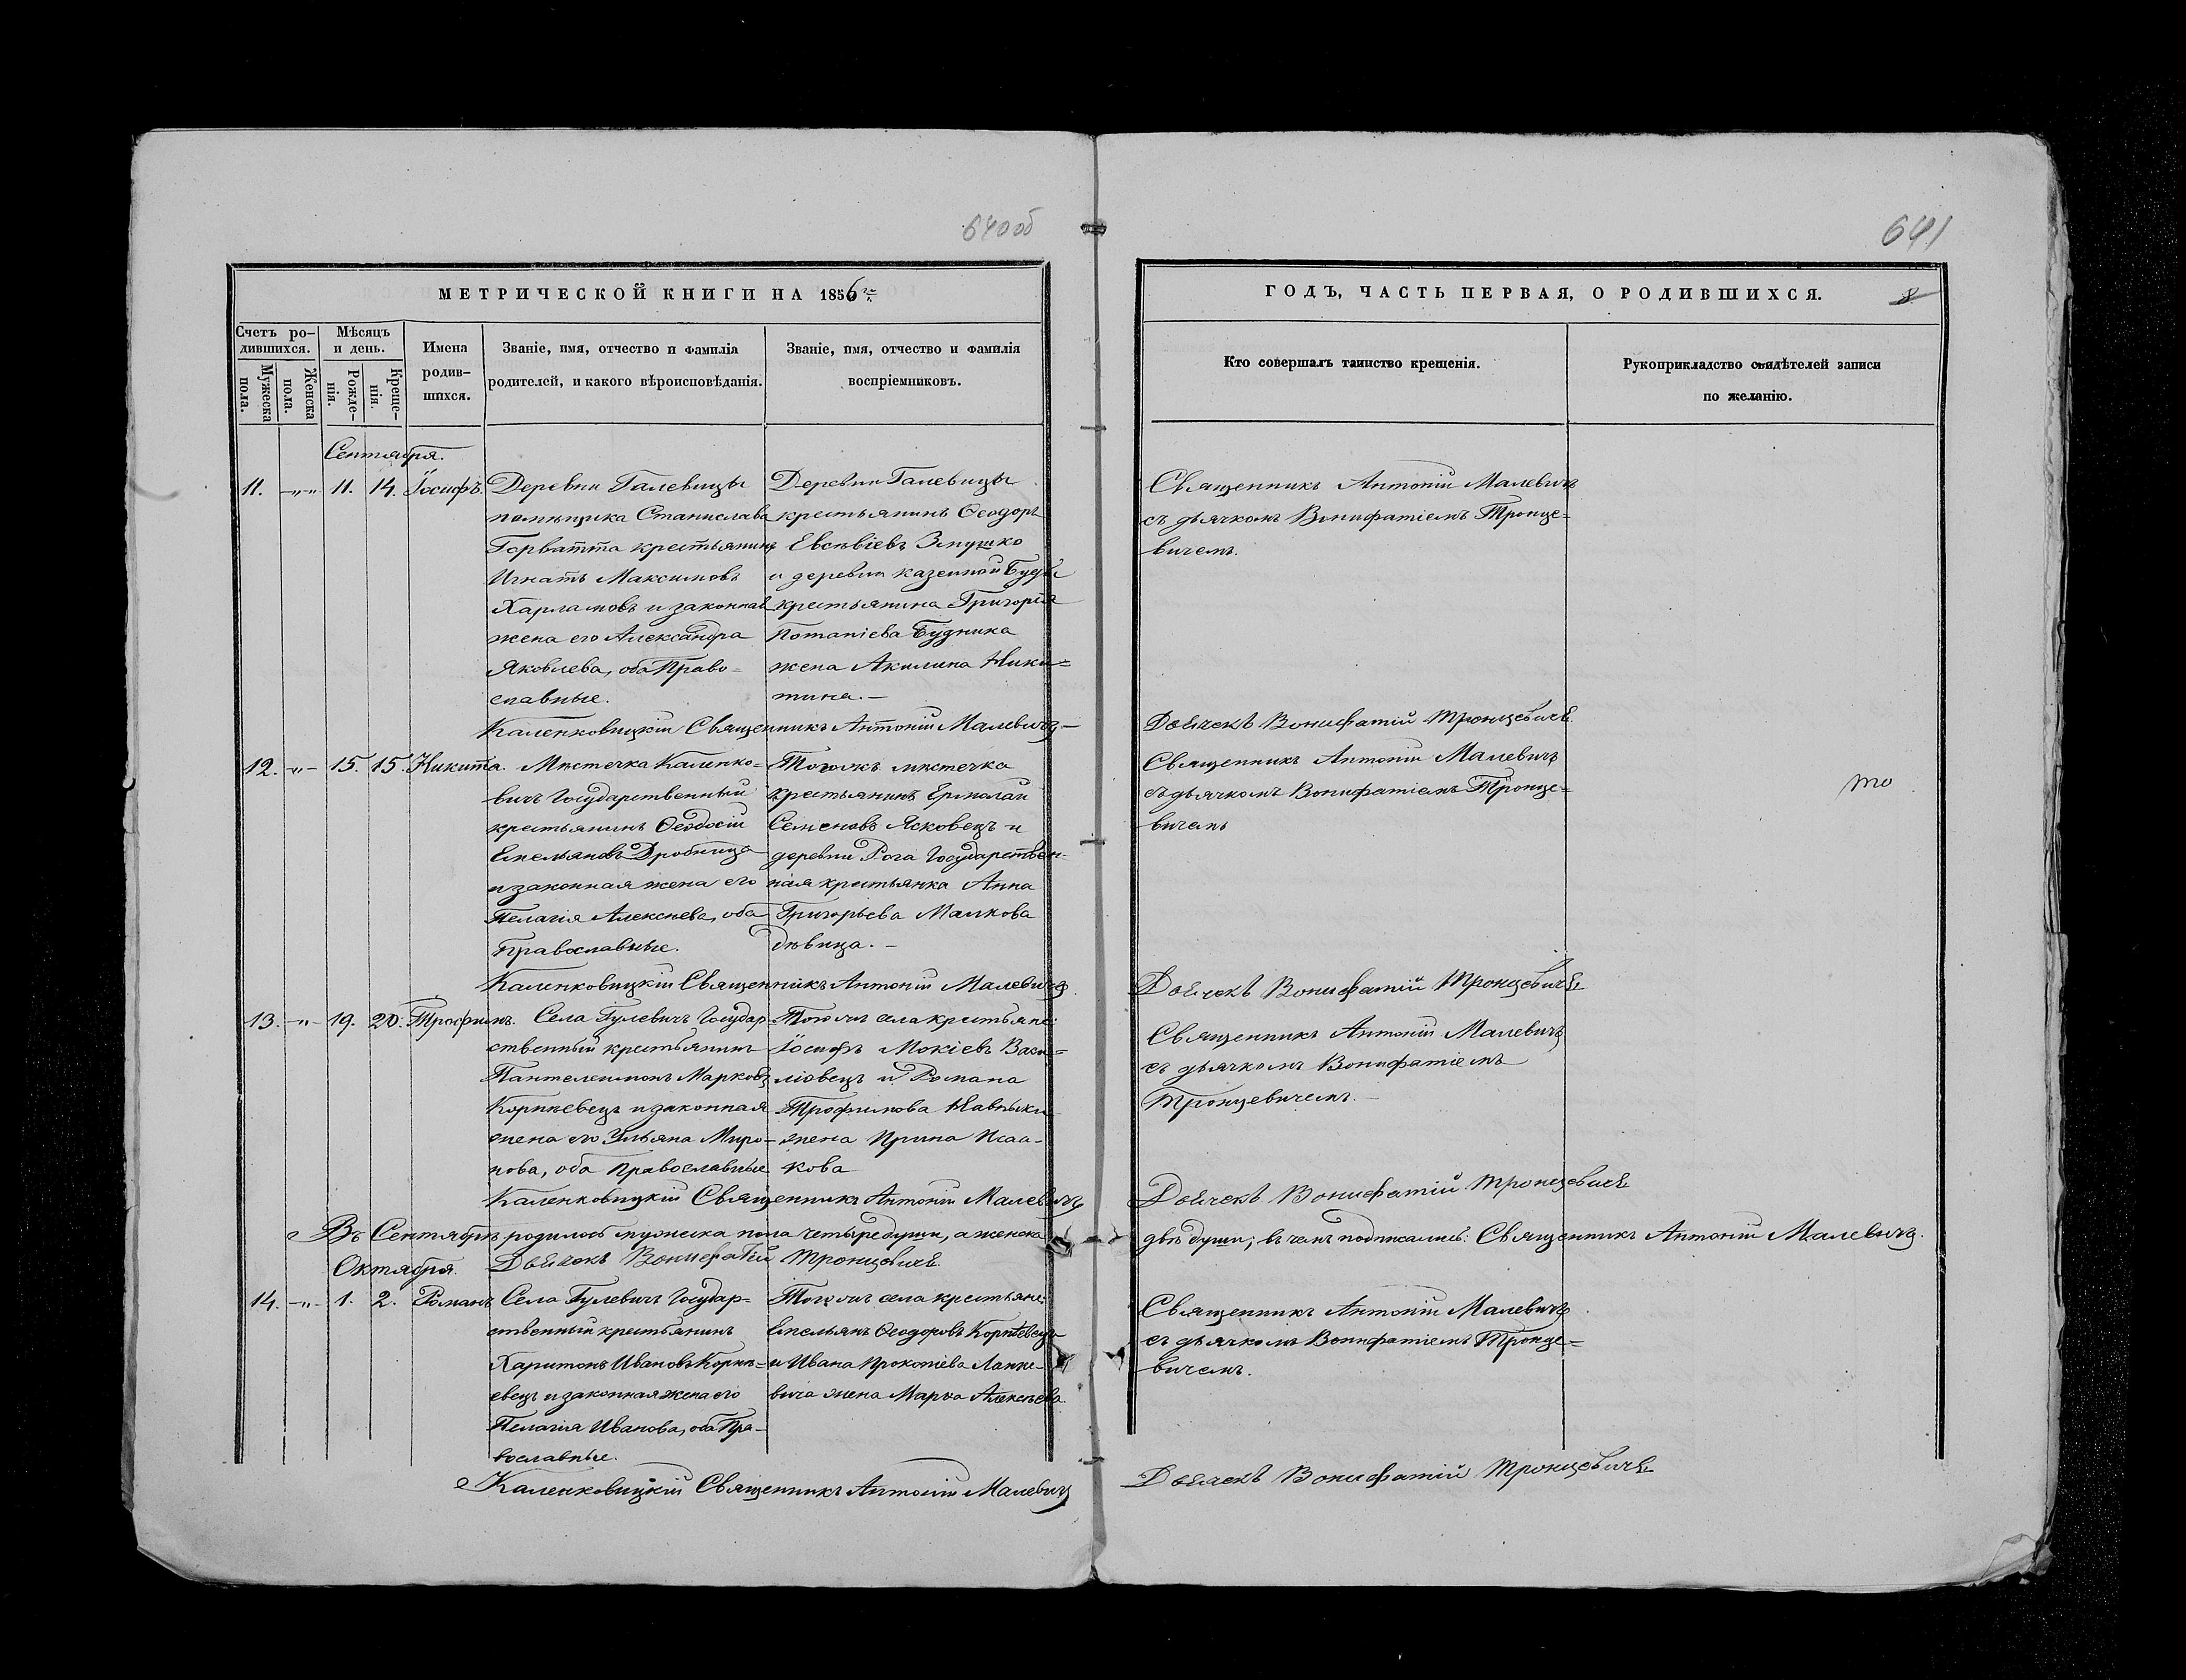 640об
МЕТРИЧЕСКОЙ КНИГИ НА 1856
Счетъ ро-
дившихся.
Мѣсяцъ
и день.
Мужеска
пола.
Женска
пола.
Рожде-
нія.
Креще-
нія.
Имена
родив-
шихся.
Званіе, имя, отчество и фамилія
родителей, и какого вѣроисповѣданія.
Званіе, имя, отчество и фамилія
воспріемниковъ.
Сентября.
11. 11. 14. Іосифъ.
Деревни Галевицы
помѣщика Станислава
Горватта крестьянинъ
Игнатъ Максимовъ
Харламовъ и законная
жена его Александра
Яковлева, оба Право=
славные.
Деревни Галевицы
крестьянинъ Ѳеодоръ
Евсѣвіевъ Змушко
и деревни казенной Буды
крестьянина Григорія
Потапіева Будника
жена Акилина Ники=
тина.-
Каленковицкій Священникъ Антоній Малевичъ-
12. 15. 15. Никита.
Мѣстечка Каленко=
вичъ Государственный
крестьянинъ Ѳеодосій
Емельяновъ Дробница
и законная жена его
Пелагія Алексѣева, оба
Православные.
Тогожъ мѣстечка
крестьянинъ Ермолай
Семеновъ Ясковецъ и
деревни Рога Государствен-
ная крестьянка Анна
Григорьева Малкова
дѣвица.-
Каленковицкій Священникъ Антоній Малевичъ
13. 19. 20. Трофимъ.
Села Гулевичъ Государ-
ственный крестьянинъ
Пантелеимонъ Марковъ
Корнѣевецъ и законная
жена его Ульяна Миро-
нова, оба Православные
Того жъ села крестьяне:
Іосифъ Мокіевъ Васи=
ліовецъ и Романа
Трофимова
жена Ирина Исаа-
кова
Каленковицкій Священникъ Антоній Малевичъ
Въ Сентябрѣ родилось мужеска пола четыре души, а женска
Дьячекъ Вонифатій Тронцевичъ
Октября.
14. 1. 2. Романъ
Села Гулевичъ Государ-
ственный крестьянинъ
Харитонъ Ивановъ Корнѣ=
евецъ и законная жена его
Пелагія Иванова, оба Пра-
вославные.
Того жъ села крестьяне:
Емельянъ Ѳеодоровъ Корнѣевецъ
и Ивана Прокопіева Лапке-
вича жена Марѳа Алексѣева
Каленковицкій Священникъ Антоній Малевичъ
641
ГОДЪ, ЧАСТЬ ПЕРВАЯ, О РОДИВШИХСЯ.
8
Кто совершалъ таинство крещенія.
Рукоприкладство свидѣтелей записи
по желанію.
Священникъ Антоній Малевичъ
съ дьячкомъ Вонифатіемъ Тронце=
вичемъ.
Дьячекъ Вонифатій Тронцевичъ
Священникъ Антоній Малевичъ
съ дьячкомъ Вонифатіемъ Тронце=
вичемъ
то
Дьячекъ Вонифатій Тронцевичъ
Священникъ Антоній Малевичъ
съ дьячкомъ Вонифатіемъ
Тронцевичемъ.-
Дьячекъ Вонифатій Тронцевичъ
двѣ души; въ чемъ подписались: Священникъ Антоній Малевичъ.
Священникъ Антоній Малевичъ
съ дьячкомъ Вонифатіемъ Тронце=
вичемъ.
Дьячекъ Вонифатій Тронцевичъ